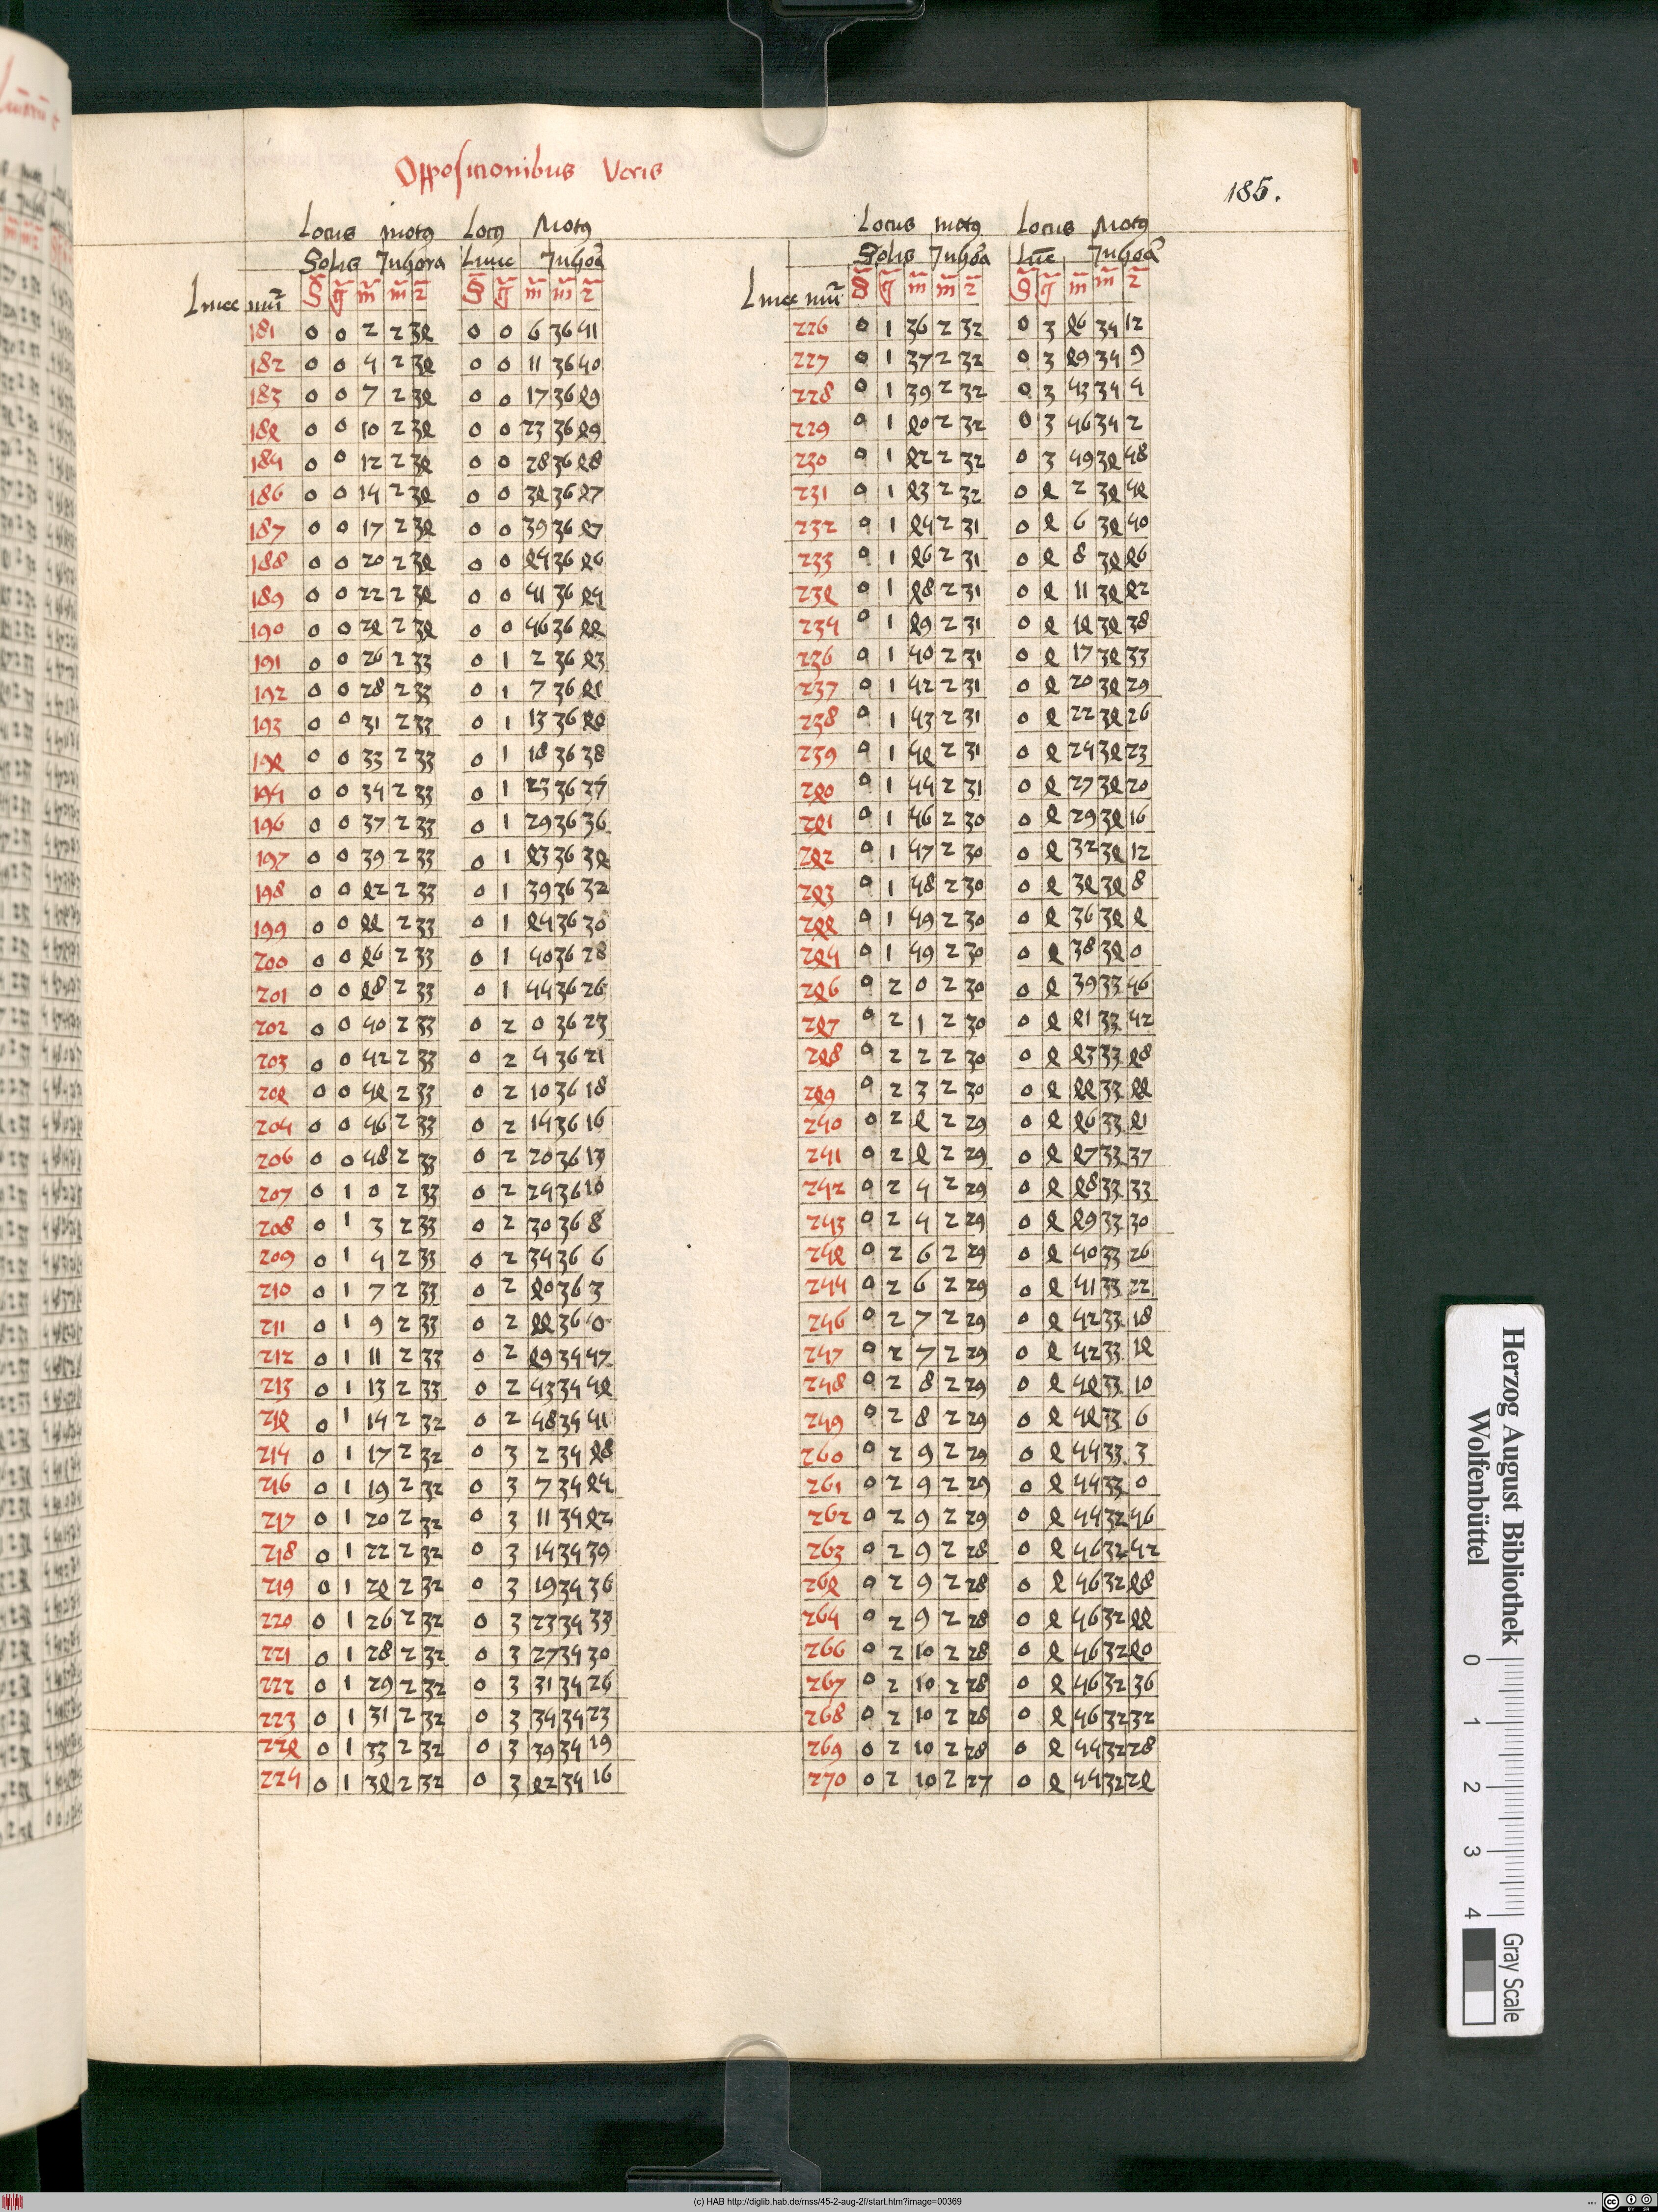 Oppositionibus Veris
185.
Locus motus Locus Motus
Solis In hora Lune In hora
Linee numeri S g m m 2 S g m m 2
181 0 0 2 2 34 0 0 6 36 51
182 0 0 5 2 34 0 0 11 36 50
183 0 0 7 2 34 0 0 17 36 49
184 0 0 10 2 34 0 0 23 36 49
185 0 0 12 2 34 0 0 28 36 48
186 0 0 15 2 34 0 0 34 36 47
187 0 0 17 2 34 0 0 39 36 47
188 0 0 20 2 34 0 0 45 36 46
189 0 0 22 2 34 0 0 51 36 45
190 0 0 24 2 34 0 0 56 36 44
191 0 0 26 2 33 0 1 2 36 43
192 0 0 28 2 33 0 1 7 36 41
193 0 0 31 2 33 0 1 13 36 40
194 0 0 33 2 33 0 1 18 36 38
195 0 0 35 2 33 0 1 23 36 37
196 0 0 37 2 33 0 1 29 36 36
197 0 0 39 2 33 0 1 43 36 34
198 0 0 42 2 33 0 1 39 36 32
199 0 0 44 2 33 0 1 45 36 30
200 0 0 46 2 33 0 1 50 36 28
201 0 0 48 2 33 0 1 55 36 26
202 0 0 50 2 33 0 2 0 36 23
203 0 0 52 2 33 0 2 5 36 21
204 0 0 54 2 33 0 2 10 36 18
205 0 0 56 2 33 0 2 15 36 16
206 0 0 58 2 33 0 2 20 36 13
207 0 1 0 2 33 0 2 25 36 10
208 0 1 3 2 33 0 2 30 36 8
209 0 1 5 2 33 0 2 35 36 6
210 0 1 7 2 33 0 2 40 36 3
211 0 1 9 2 33 0 2 44 36 0
212 0 1 11 2 33 0 2 49 35 57
213 0 1 13 2 33 0 2 53 35 54
214 0 1 15 2 32 0 2 58 35 51
215 0 1 17 2 32 0 3 2 35 48
216 0 1 19 2 32 0 3 7 35 45
217 0 1 20 2 32 0 3 11 35 42
218 0 1 22 2 32 0 3 15 35 39
219 0 1 24 2 32 0 3 19 35 36
220 0 1 26 2 32 0 3 23 35 33
221 0 1 28 2 32 0 3 27 35 30
222 0 1 29 2 32 0 3 31 35 26
223 0 1 31 2 32 0 3 35 35 23
224 0 1 33 2 32 0 3 39 35 19
225 0 1 34 2 32 0 3 42 35 16
Locus motus Locus Motus
Solis In hora Lune In hora
Linee numeri S g m m 2 S g m m 2
226 0 1 36 2 32 0 3 46 35 12
227 0 1 37 2 32 0 3 49 35 9
228 0 1 39 2 32 0 3 53 35 5
229 0 1 40 2 32 0 3 56 35 2
230 0 1 42 2 32 0 3 59 34 58
231 0 1 43 2 32 0 4 2 34 54
232 0 1 45 2 31 0 4 6 34 50
233 0 1 46 2 31 0 4 8 34 46
234 0 1 48 2 31 0 4 11 34 42
235 0 1 49 2 31 0 4 14 34 38
236 0 1 50 2 31 0 4 17 34 33
237 0 1 52 2 31 0 4 20 34 29
238 0 1 53 2 31 0 4 22 34 26
239 0 1 54 2 31 0 4 25 34 23
240 0 1 55 2 31 0 4 27 34 20
241 0 1 56 2 30 0 4 29 34 16
242 0 1 57 2 30 0 4 32 34 12
243 0 1 58 2 30 0 4 34 34 8
244 0 1 59 2 30 0 4 36 34 4
245 0 1 59 2 30 0 4 38 34 0
246 0 2 0 2 30 0 4 39 33 56
247 0 2 1 2 30 0 4 41 33 52
248 0 2 2 2 30 0 4 43 33 48
249 0 2 3 2 30 0 4 44 33 44
250 0 2 4 2 29 0 4 46 33 41
251 0 2 4 2 29 0 4 47 33 37
252 0 2 5 2 29 0 4 48 33 33
253 0 2 5 2 29 0 4 49 33 30
254 0 2 6 2 29 0 4 50 33 26
255 0 2 6 2 29 0 4 51 33 22
256 0 2 7 2 29 0 4 52 33 18
257 0 2 7 2 29 0 4 52 33 14
258 0 2 8 2 29 0 4 54 33 10
259 0 2 8 2 29 0 4 54 33 6
260 0 2 9 2 29 0 4 55 33 3
261 0 2 9 2 29 0 4 55 33 0
262 0 2 9 2 29 0 4 55 32 56
263 0 2 9 2 28 0 4 56 32 52
264 0 2 9 2 28 0 4 56 32 48
265 0 2 9 2 28 0 4 56 32 44
266 0 2 10 2 28 0 4 56 32 40
267 0 2 10 2 28 0 4 56 32 36
268 0 2 10 2 28 0 4 56 32 32
269 0 2 10 2 28 0 4 55 32 28
270 0 2 10 2 27 0 4 55 32 24
Herzog August Bibliothek
Wolfenbüttel
0 1 2 3 4
Gray Scale
(c) HAB http://diglib.hab.de/mss/45-2-aug-2f/start.htm?image=00369